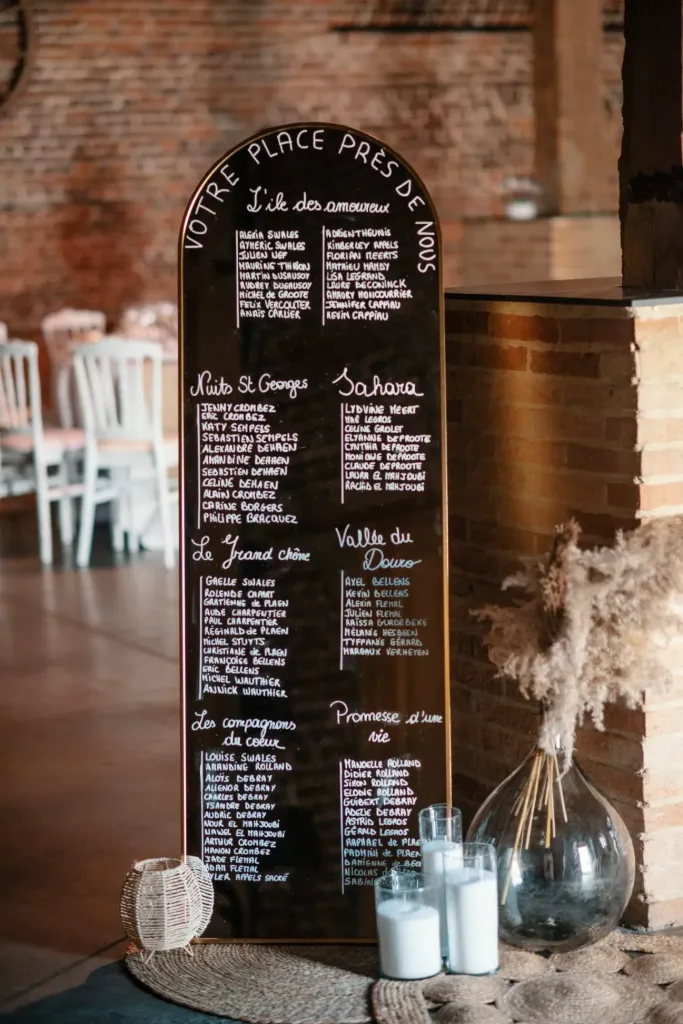 VOTRE PLACE PRÈS DE NOUS
L'ile des amoureux
ALEXIA SWALES
AYMERIC SWALES
JULIEN NEF
MAURINE THIRION
MARTIN DUSAUSOY
AUDREY DUSAUSOY
MICHEL DE GROOTE
FELIX VERCOUTER
ANAÏS CARLIER
ADRIEN THEUNIS
KIMBERLEY APPELS
FLORIAN MEERTS
MATHIEU HAMDY
LISA LEGRAND
LAURE DECONINCK
AMAURY HONCOURRIER
JENNIFER CAPPIAU
KEVIN CAPPIAU
Nuits St Georges
JENNY CROMBEZ
ERIC CROMBEZ
KATY SEMPELS
SEBASTIEN SEMPELS
ALEXANDRE DEHAEN
AMANDINE DEHAEN
SEBASTIEN DEHAEN
CELINE DEHAEN
ALAIN CROMBEZ
CARINE BORGERS
PHILIPPE BRACQUEZ
Sahara
LYDVINE MEERT
MAÉ LEGROS
CELINE GROLET
ELYANNE DEPROOTE
CYNTHIA DEPROOTE
MONIQUE DEPROOTE
CLAUDE DEPROOTE
LAURA EL MAHJOUBI
RACHID EL MAHJOUBI
Le Grand chêne
GAELLE SWALES
ROLENDE CAPART
GRATIENNE de PLAEN
AUDE CHARPENTIER
PAUL CHARPENTIER
REGINALD de PLAEN
MICHEL STUYTS
CHRISTIANE de PLAEN
FRANÇOISE BELLENS
ERIC BELLENS
MICHEL WAUTHIER
ANNICK WAUTHIER
Vallée du
Douro
AXEL BELLENS
KEVIN BELLENS
ALEXIA FLEMAL
JULIEN FLEMAL
RAÏSSA GURDEBEKE
MÉLANIE HESBEEN
TYFFANIE GÉRARD
MARGAUX VERHEYEN
Les compagnons
du coeur
LOUISE SWALES
AMANDINE ROLLAND
ALOÏS DEBRAY
ALIENOR DEBRAY
CHARLES DEBRAY
YSANDRE DEBRAY
AUDRIC DEBRAY
NOUR EL MAHJOUBI
NAWEL EL MAHJOUBI
ARTHUR CROMBEZ
MANON CROMBEZ
JADE FLEMAL
ADAM FLEMAL
TYLER APPELS SACRÉ
Promesse d'une
vie
MANOELLE ROLLAND
DIDIER ROLLAND
SIMON ROLLAND
ELODIE ROLLAND
GUIBERT DEBRAY
ADELIE DEBRAY
ASTRID LEGROS
GÉRALD LEGROS
RAPHAEL de PLAEN
PADMINI de PLAEN
DAMIENNE de
NICOLAS